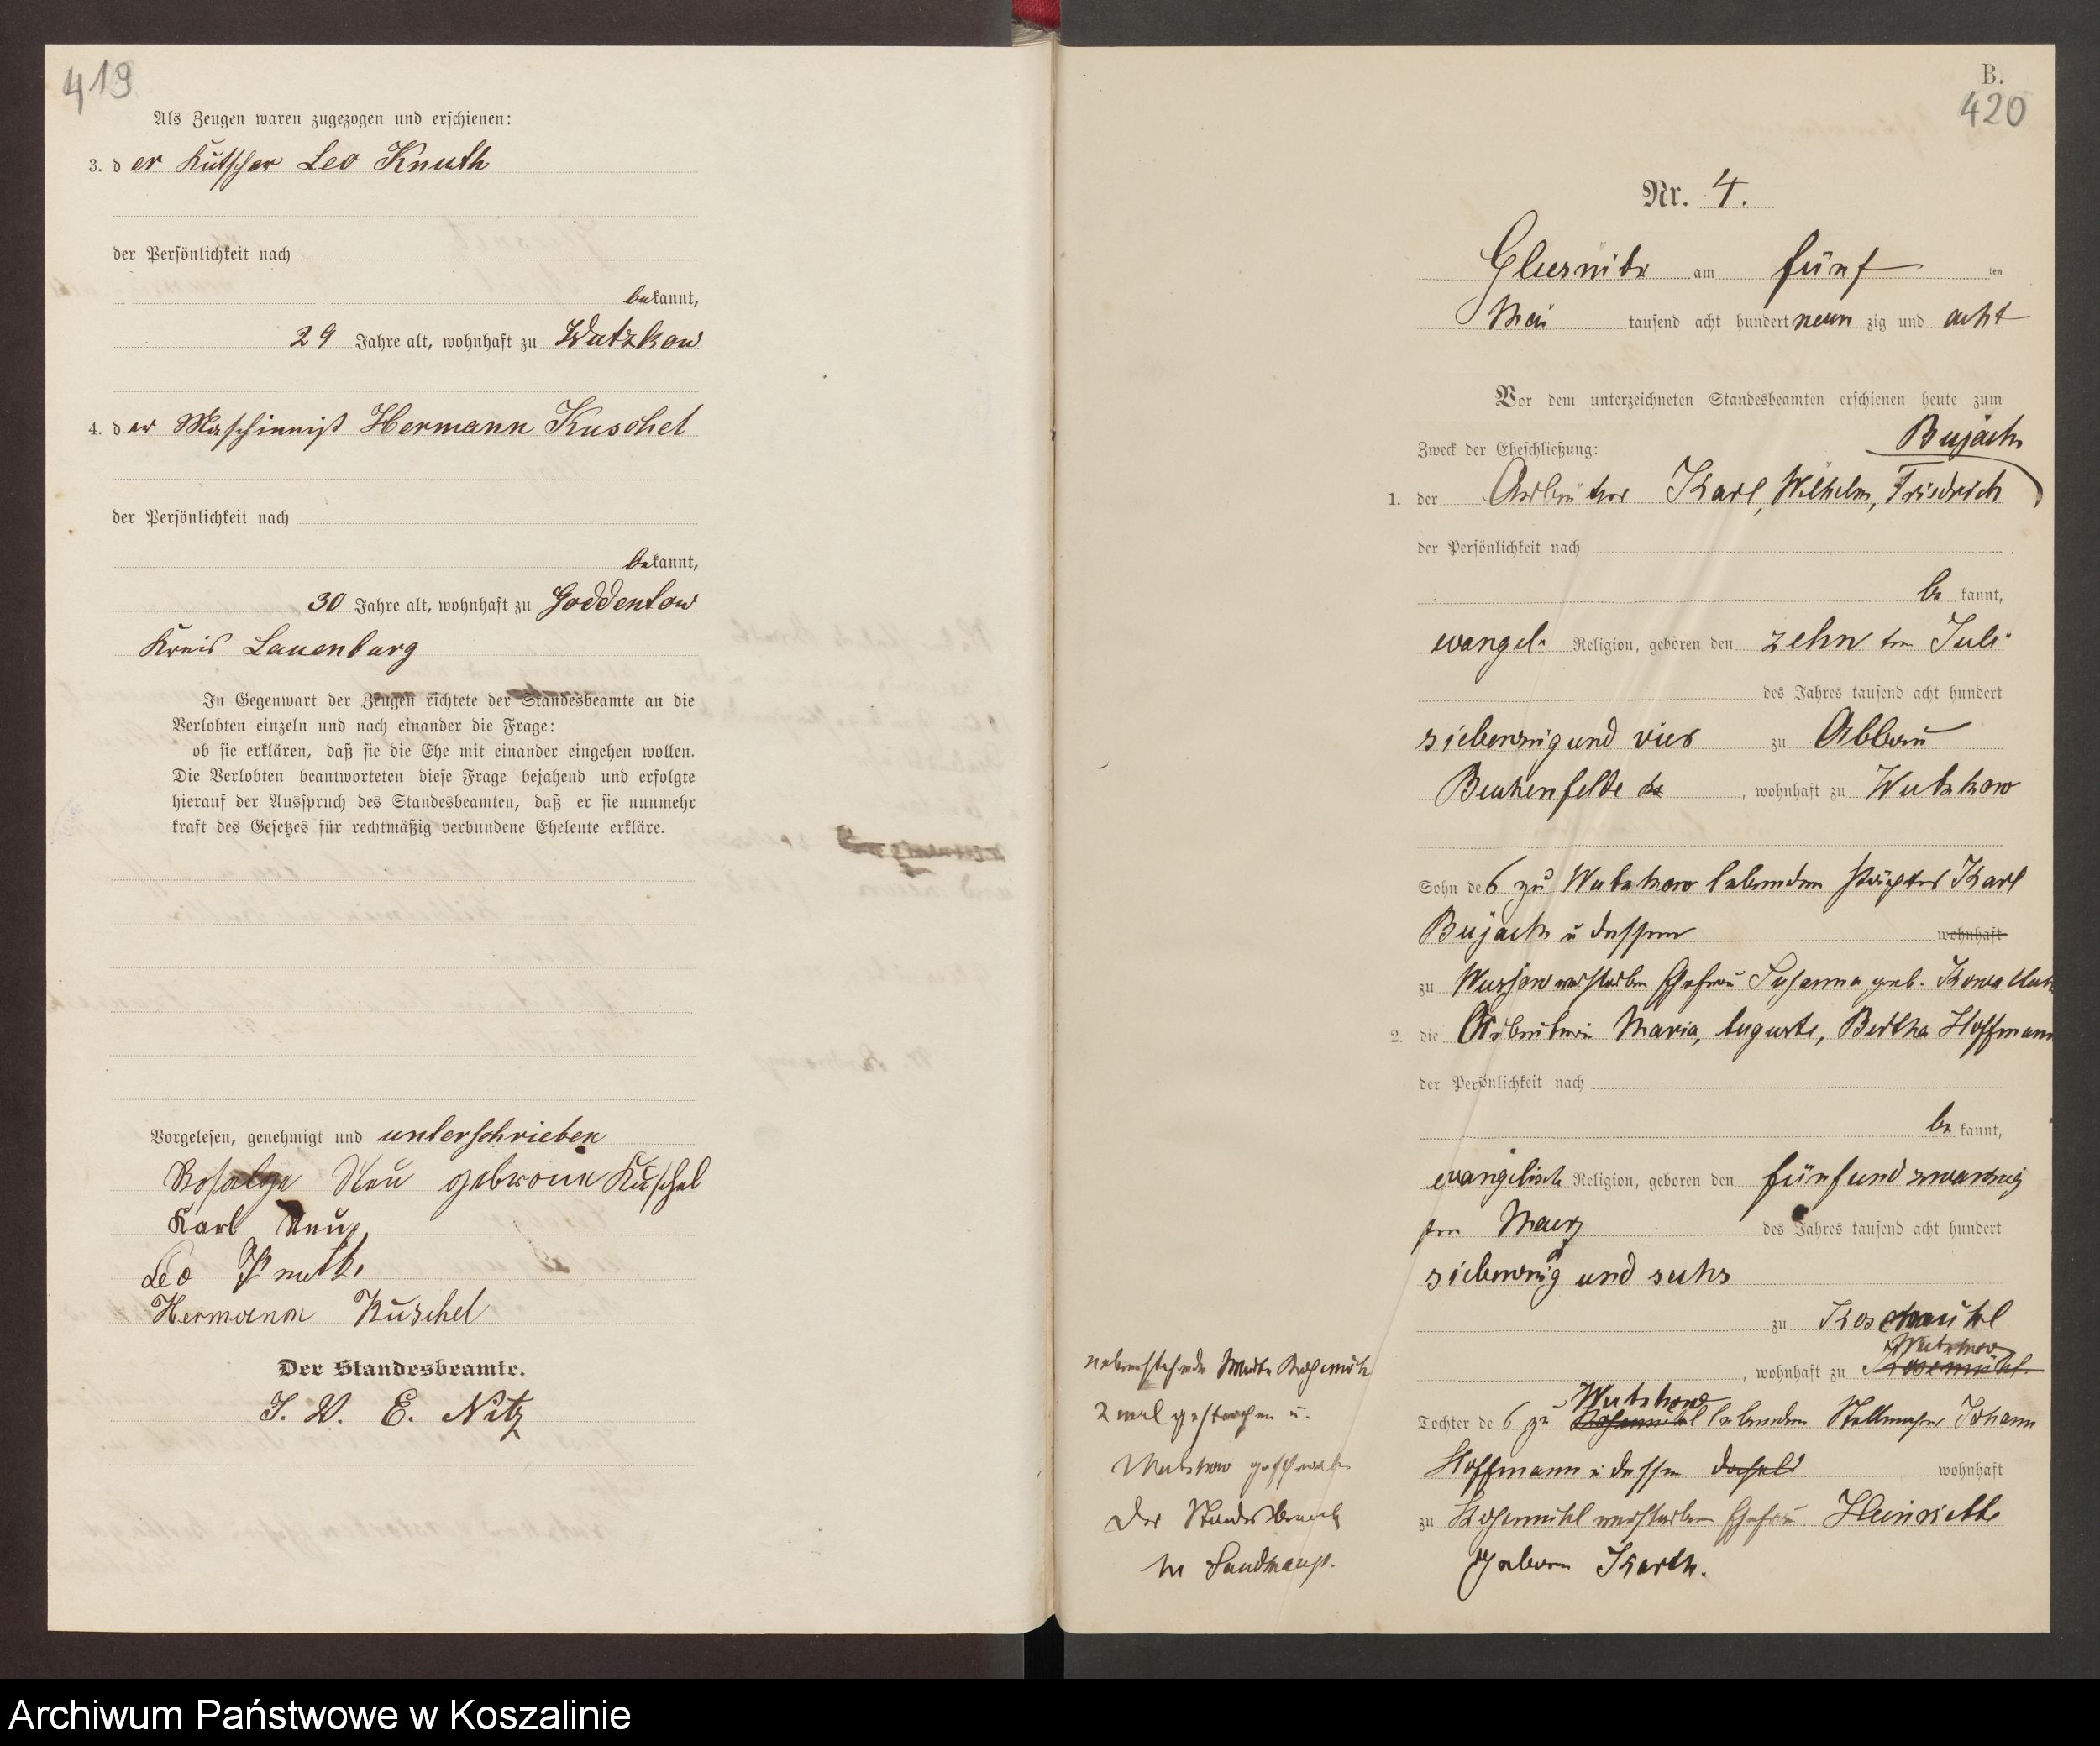 419
Als Zeugen waren zugezogen und erschienen:
3. d er Kutscher Leo Knuth
der Persönlichkeit nach
bekannt,
29 Jahre alt, wohnhaft zu Wutzkow
4. der Maschinist Hermann Kuschel
der Persönlichkeit nach
bekannt,
30 Jahre alt, wohnhaft zu Goddentow
Kreis Lauenburg
In Gegenwart der Zeugen richtete der Standesbeamte an die
Verlobten einzeln und nach einander die Frage:
ob sie erklären, daß sie die Ehe mit einander eingehen wollen.
Die Verlobten beantworteten diese Frage bejahend und erfolgte
hierauf der Ausspruch des Standesbeamten, daß er sie nunmehr
kraft des Gesetzes für rechtmäßig verbundene Eheleute erkläre.
Vorgelesen, genehmigt und unterschrieben
Kuschel
Karl
Leo Knuth
Hermann Kuschel
Der Standesbeamte.
I. V. E. Nitz
B.
420
Nr. 4.
am fünf ten
Mai tausend acht hundert neun zig und acht
Vor dem unterzeichneten Standesbeamten erschienen heute zum
Zweck der Eheschließung: Bujack
1. der Arbeiter Karl, Wilhelm, Friedrich
der Persönlichkeit nach
be kannt,
evangel. Religion, geboren den zehn ten Juli
des Jahres tausend acht hundert
siebenzig und vier zu Abbau
wohnhaft zu Wutzkow
Sohn des zu Wutzkow lebenden Karl
Bujack u dessen wohnhaft
zu verstorbenen Ehefrau Susanna geb.
2. die Arbeiterin Maria, Auguste, Bertha Hoffmann
der Persönlichkeit nach
be kannt,
evangelisch Religion, geboren den fünf und zwanzig
ten Maerz des Jahres tausend acht hundert
siebenzig und sechs
zu Kosemühl
Wutzkow
, wohnhaft zu Kosemühl.
Wutzkow
Tochter des zu Kosemühl lebenden Stellmacher Johann
Hoffmann u dessen daselbst wohnhaft
zu Kosemühl verstorbenen Ehefrau Heinriette
geboren
nebenstehende Worte Kosemühl
2 mal gestrichen u.
Wutzkow
Der Standesbeamte
Archiwum Państwowe w Koszalinie